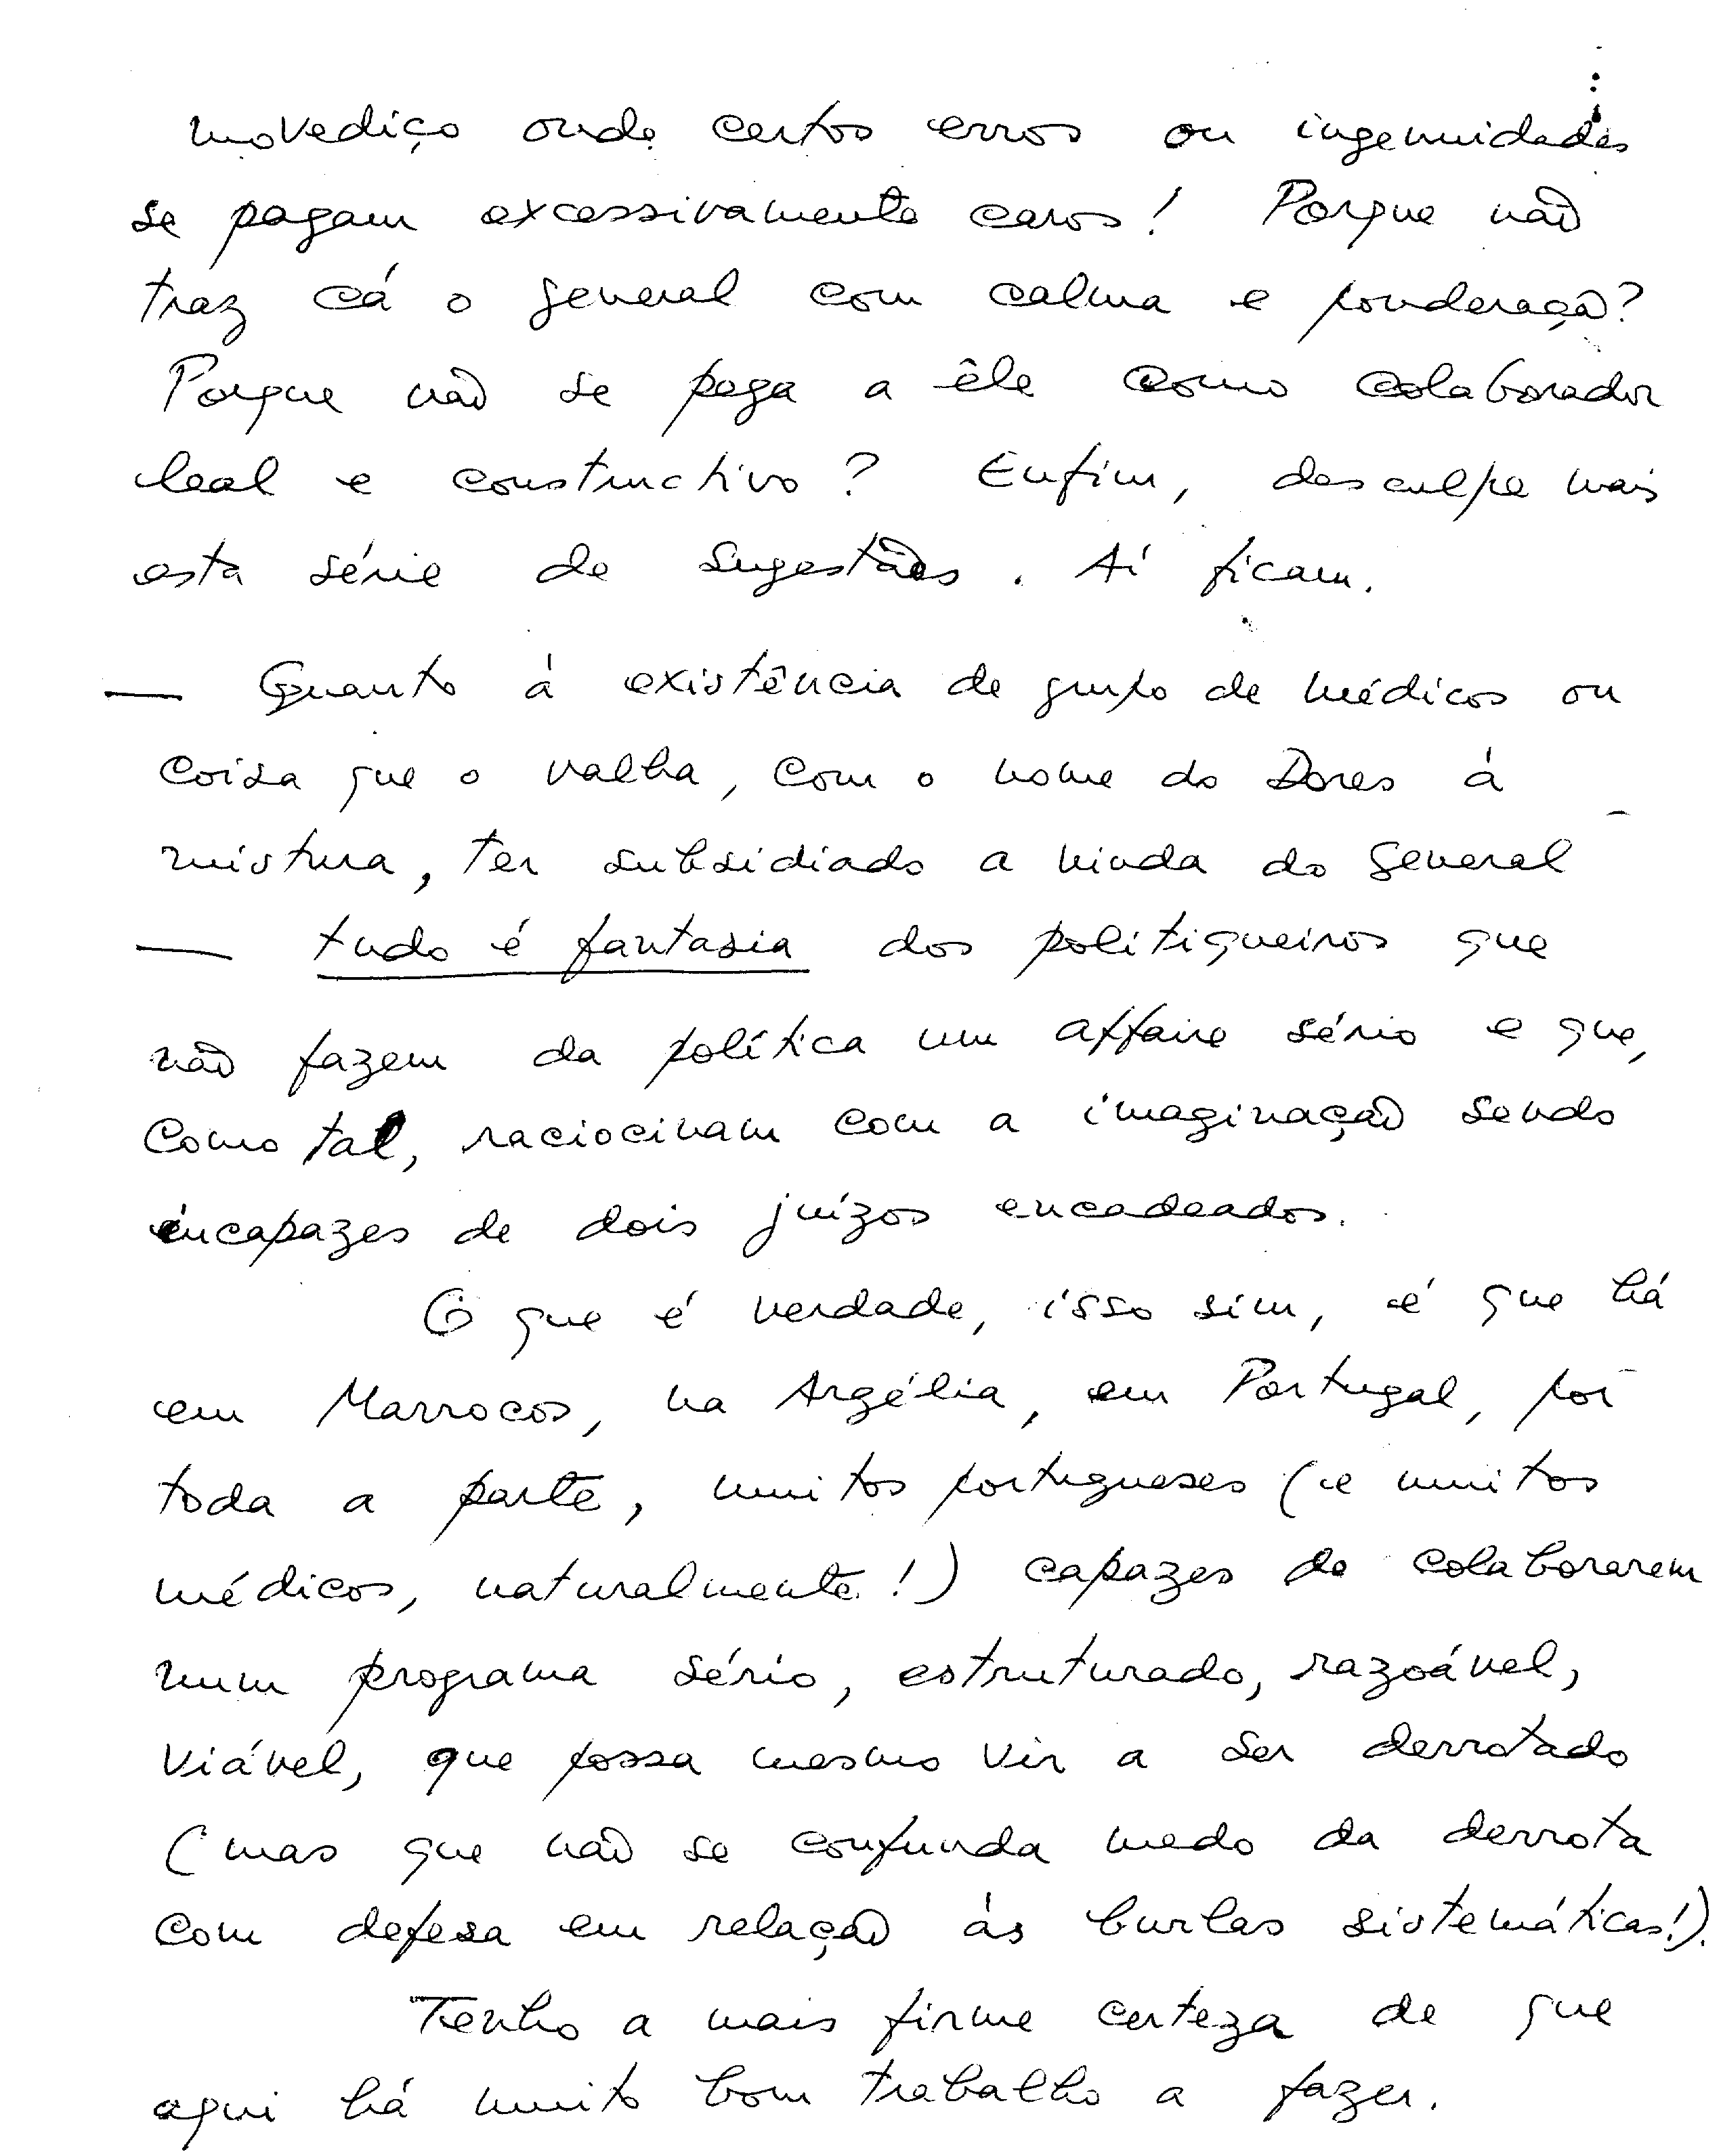 movediço onde certos erros ou ingenuidades
se pagam excessivamente caros! Porque não
traz cá o general com calma e ponderação?
Porque não se pega a êle como colaborador
leal e constructivo? Enfim, desculpe mais
esta série de sugestões. Aí ficam.
— Quanto á existência de grupo de médicos ou
coisa que o valha, com o nome do Dores á
mistura, ter subsidiado a vinda do general
— tudo é fantasia dos politiqueiros que
não fazem da política um affaire sério e que,
como tal, raciocinam com a imaginação sendo
incapazes de dois juízos encadeados.
O que é verdade, isso sim, é que há
em Marrocos, na Argélia, em Portugal, por
toda a parte, muitos portugueses (e muitos
médicos, naturalmente!) capazes de colaborarem
num programa sério, estruturado, razoável,
viável, que possa mesmo vir a ser derrotado
(mas que não se confunda medo da derrota
com defesa em relação ás burlas sistemáticas!).
Tenho a mais firme certeza de que
aqui há muito bom trabalho a fazer.